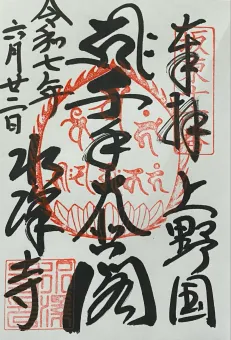 奉拝
坂東十六番
上野国
千手大悲閣
水澤寺
令和七年
六月廿二日